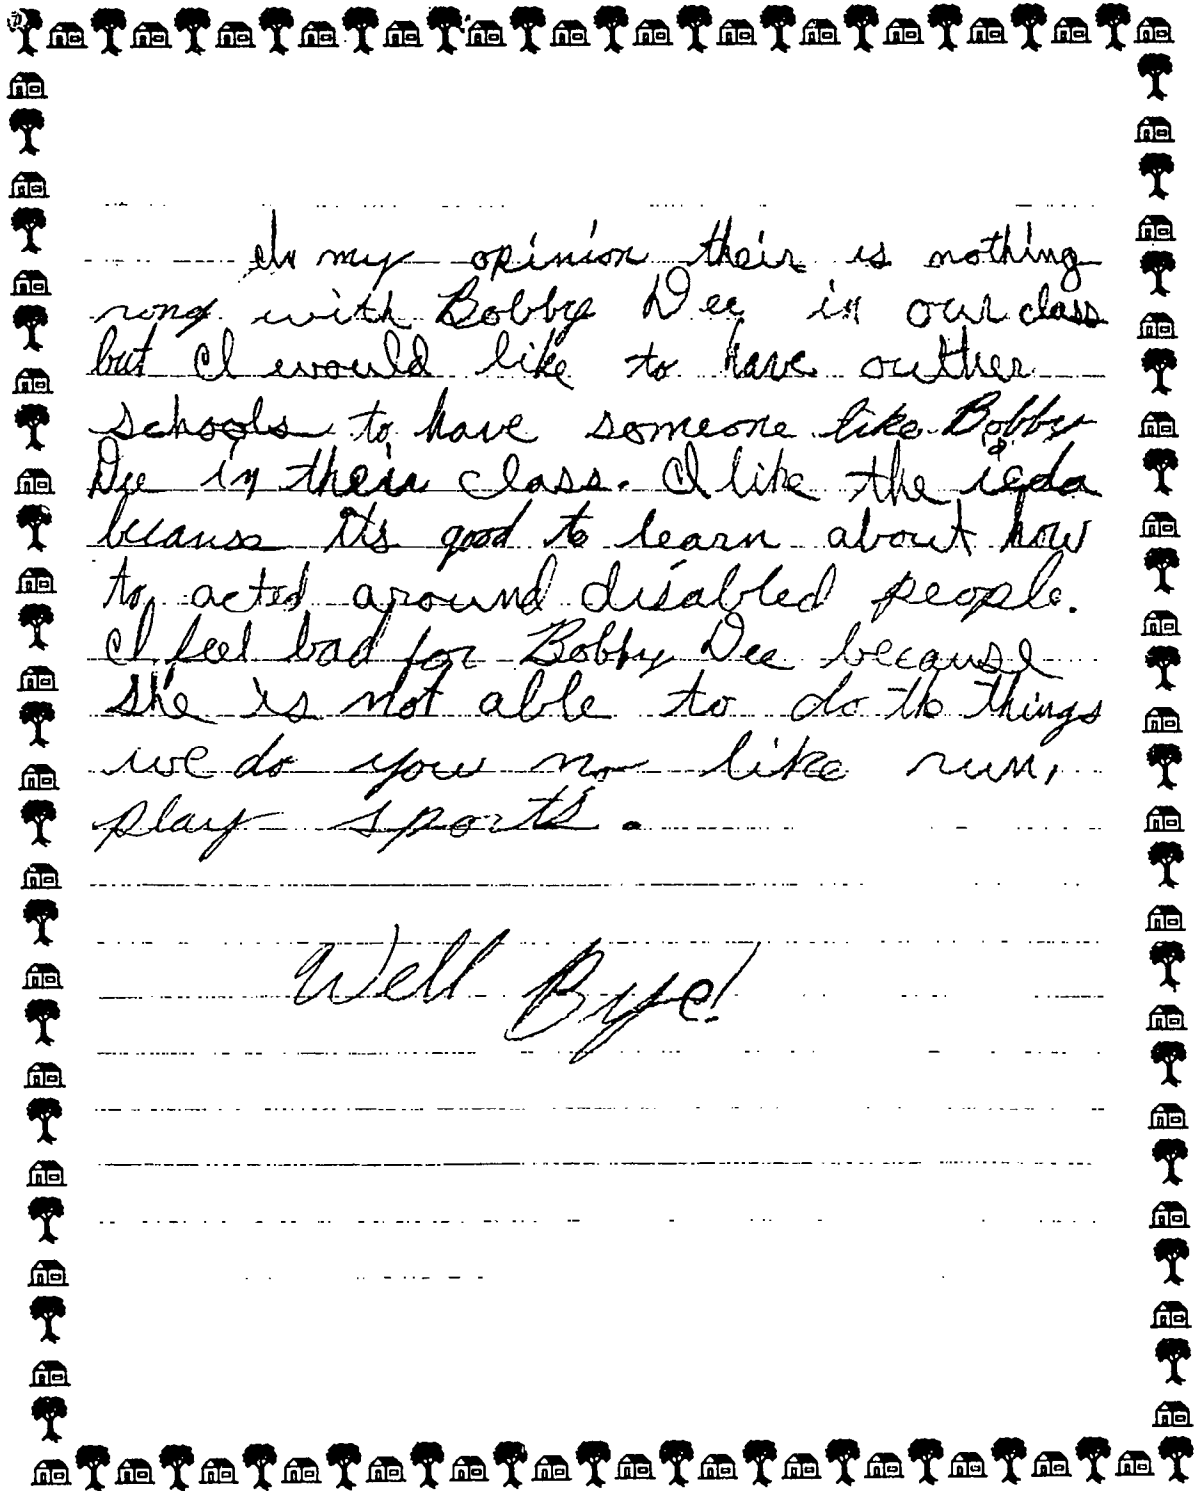 In my opinion their is nothing
rong with Bobby Dee in our class
but I would like to have outher
schools to have someone like Bobby
Dee in their class. I like the ieda
because it's good to learn about how
to acted around disabled people.
I feel bad for Bobby Dee because
she is not able to do the things
we do you no like run,
play sports.
Well Bye!